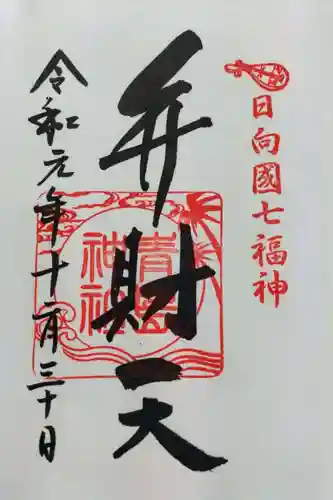 日向國七福神
弁財天
青島神社
令和元年十二月三十日